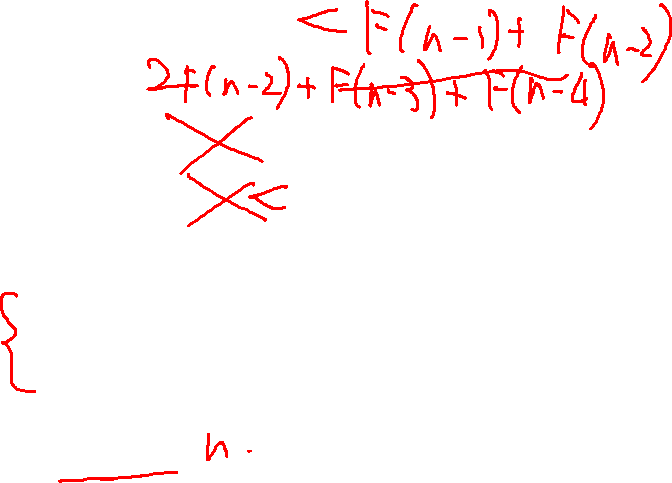 < F(n-1)+ F(n-2)
2F(n-2)+F(n-3)+F(n-4)
<
{
n.